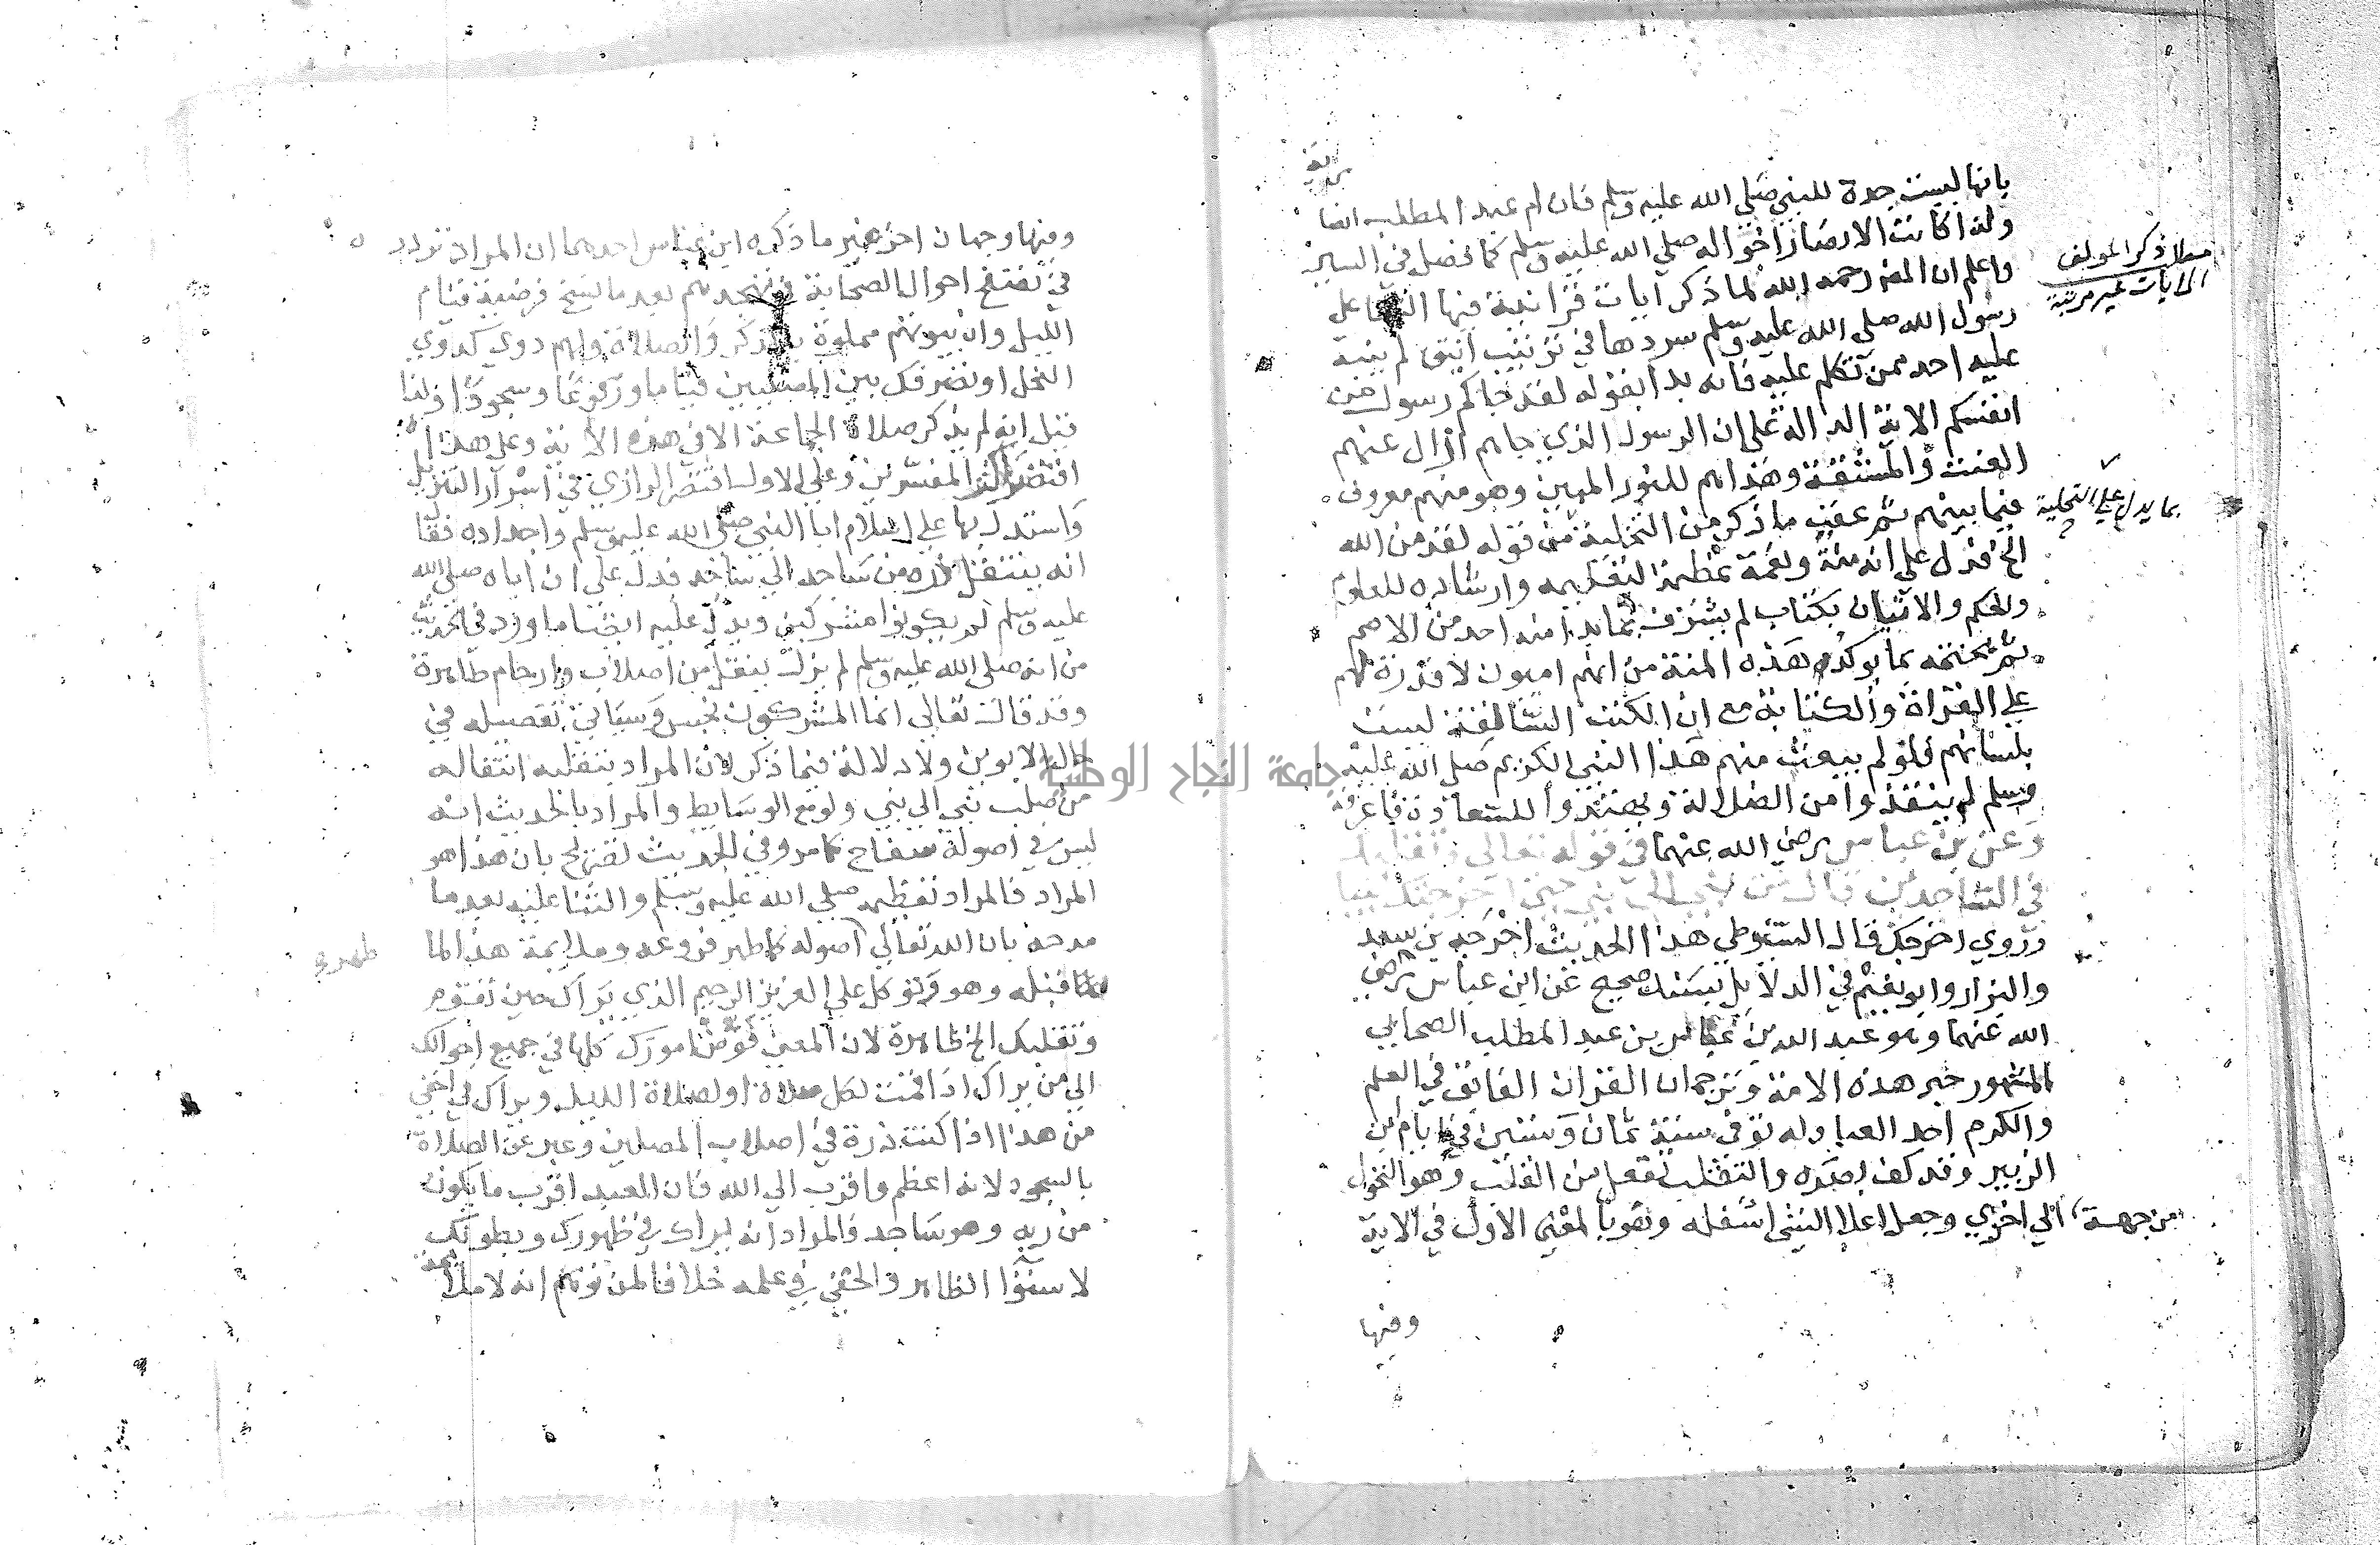 بانها ليست جدة للنبي صلي الله عليه وسلم فان ام عبد المطلب انصا
رية
ولذا كانت الانصار اخواله صلي الله عليه وسلم كما فصل في السير
واعلم ان المص رحمه الله لما ذكر ايات قرانية فيها الثنا علي
رسول الله صلي الله عليه وسلم سردها في ترتيب انيق لم ينبه
عليه احد ممن تكلم عليه فانه بدا بقوله لقد جاكم رسول من
انفسكم الاية الدالة علي ان الرسول الذي جاهم ازال عنهم
العنت والمشقة وهداهم للنور المبين وهو منهم معروف
فيما بينهم ثم عقب ما ذكر من التخلية من قوله لقد من الله
الخ فدل علي انه منة ونعمة عظيمة لتعليمه وارشاده للعلوم
والحكم والاتيان بكتاب لم يشرف بما يدا منه احد من الامم
ثم يختمه بما يوكد هذه المنة من انهم اميون لا قدرة لهم
علي القراة والكتابة مع ان الكتب السالفة ليست
بلسانهم فلو لم يبعث منهم هذا النبي الكريم صلي الله عليه
وسلم لم ينقذوا من الضلالة ويهتدوا للسعادة فاعرفه
وعن بن عباس رضي الله عنهما في قوله تعالي وتقلبك
في الساجدين قال من نبي الي نبي حتي اخرجتك نبيا
وروي اخرجك قال السيوطي هذا الحديث اخرجه بن سعد
والبزار وابو نعيم في الدلايل بسند صحيح عن ابن عباس رضي
الله عنهما وهو عبد الله بن عباس بن عبد المطلب الصحابي
المشهور حبر هذه الامة وترجمان القران الفائق في العلم
والكرم احد العبادله توفي سنة ثمان وستين في ايام بن
الزبير وقد كف بصره والتقلب تفعل من القلب وهو التحول
من جهة الي اخري وجعل اعلا الشي اسفله وهو بالمعني الاول في الاية
وفيها
مطلب ذكر المولف
الايات غير مرتبة
بما يدل علي التحلية
وفيها وجهان اخر غير ما ذكره ابن عباس احدهما ان المراد تردد
في تصفح احوال الصحابة في تهجدهم بعد ما نسخ فرضية قيام
الليل وان بيوتهم مملوة بالذكر والصلاة ولهم دوي كدوي
النحل او تصرفك بين المصليين قياما وركوعا وسجودا ولذا
قيل انه لم يذكر صلاة الجماعة الا في هذه الاية وعلي هذا
اقتصر اكثر المفسرين وعلي الاول اقتصر الرازي في اسرار التنزيل
واستدل بها علي اسلام ابا النبي صلي الله عليه وسلم واجداده فقال
انه ينتقل نوره من ساجد الي ساجد فدل علي ان اباه صلي الله
عليه وسلم لم يكونوا مشركين ويدل عليه ايضا ما ورد في الحديث
من انه صلي الله عليه وسلم لم يزل ينقل من اصلاب وارحام طاهرة
وقد قال تعالي انما المشركون نجس وسياتي تفصيله في
حال الابوين ولا دلالة فيما ذكر لان المراد بتقلبه انتقاله
من صلب نبي الي نبي ولو مع الوسايط والمراد بالحديث انه
ليس في اصوله سفاح كما مر وفي الحديث تصريح بان هذا هو
المراد فالمراد تعظيمه صلي الله عليه وسلم والثنا عليه بعد ما
مدحه بان الله تعالي اصوله كما طهر فروعه وملايمة هذا لما
قبله وهو وتوكل علي العزيز الرحيم الذي يراك حين تقوم
وتقلبك الخ ظاهرة لان المعني فوض امورك كلها في جميع احوالك
الي من يراك اذا قمت لكل صلاة او لصلاة الليل ويراك في اخفي
من هذا اذا كنت ذرة في اصلاب المصلين وعبر عن الصلاة
بالسجود لانه اعظم واقرب الي الله فان العبد اقرب ما يكون
من ربه وهو ساجد فالمراد انه يراك في ظهورك وبطونك
لاستوا الظاهر والخفي في علمه خلافا لمن توهم انه لا ملا
يمة
طهر
جامعة النجاح الوطنية